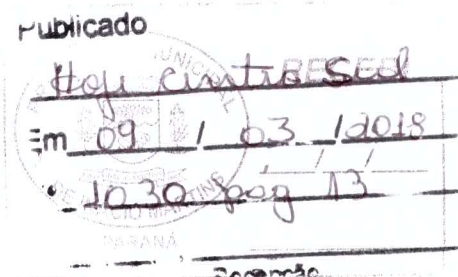 Publicado
Hoje Centro Sul
Em 09 / 03 / 2018
1030 pág 13
PARANÁ
Recepção